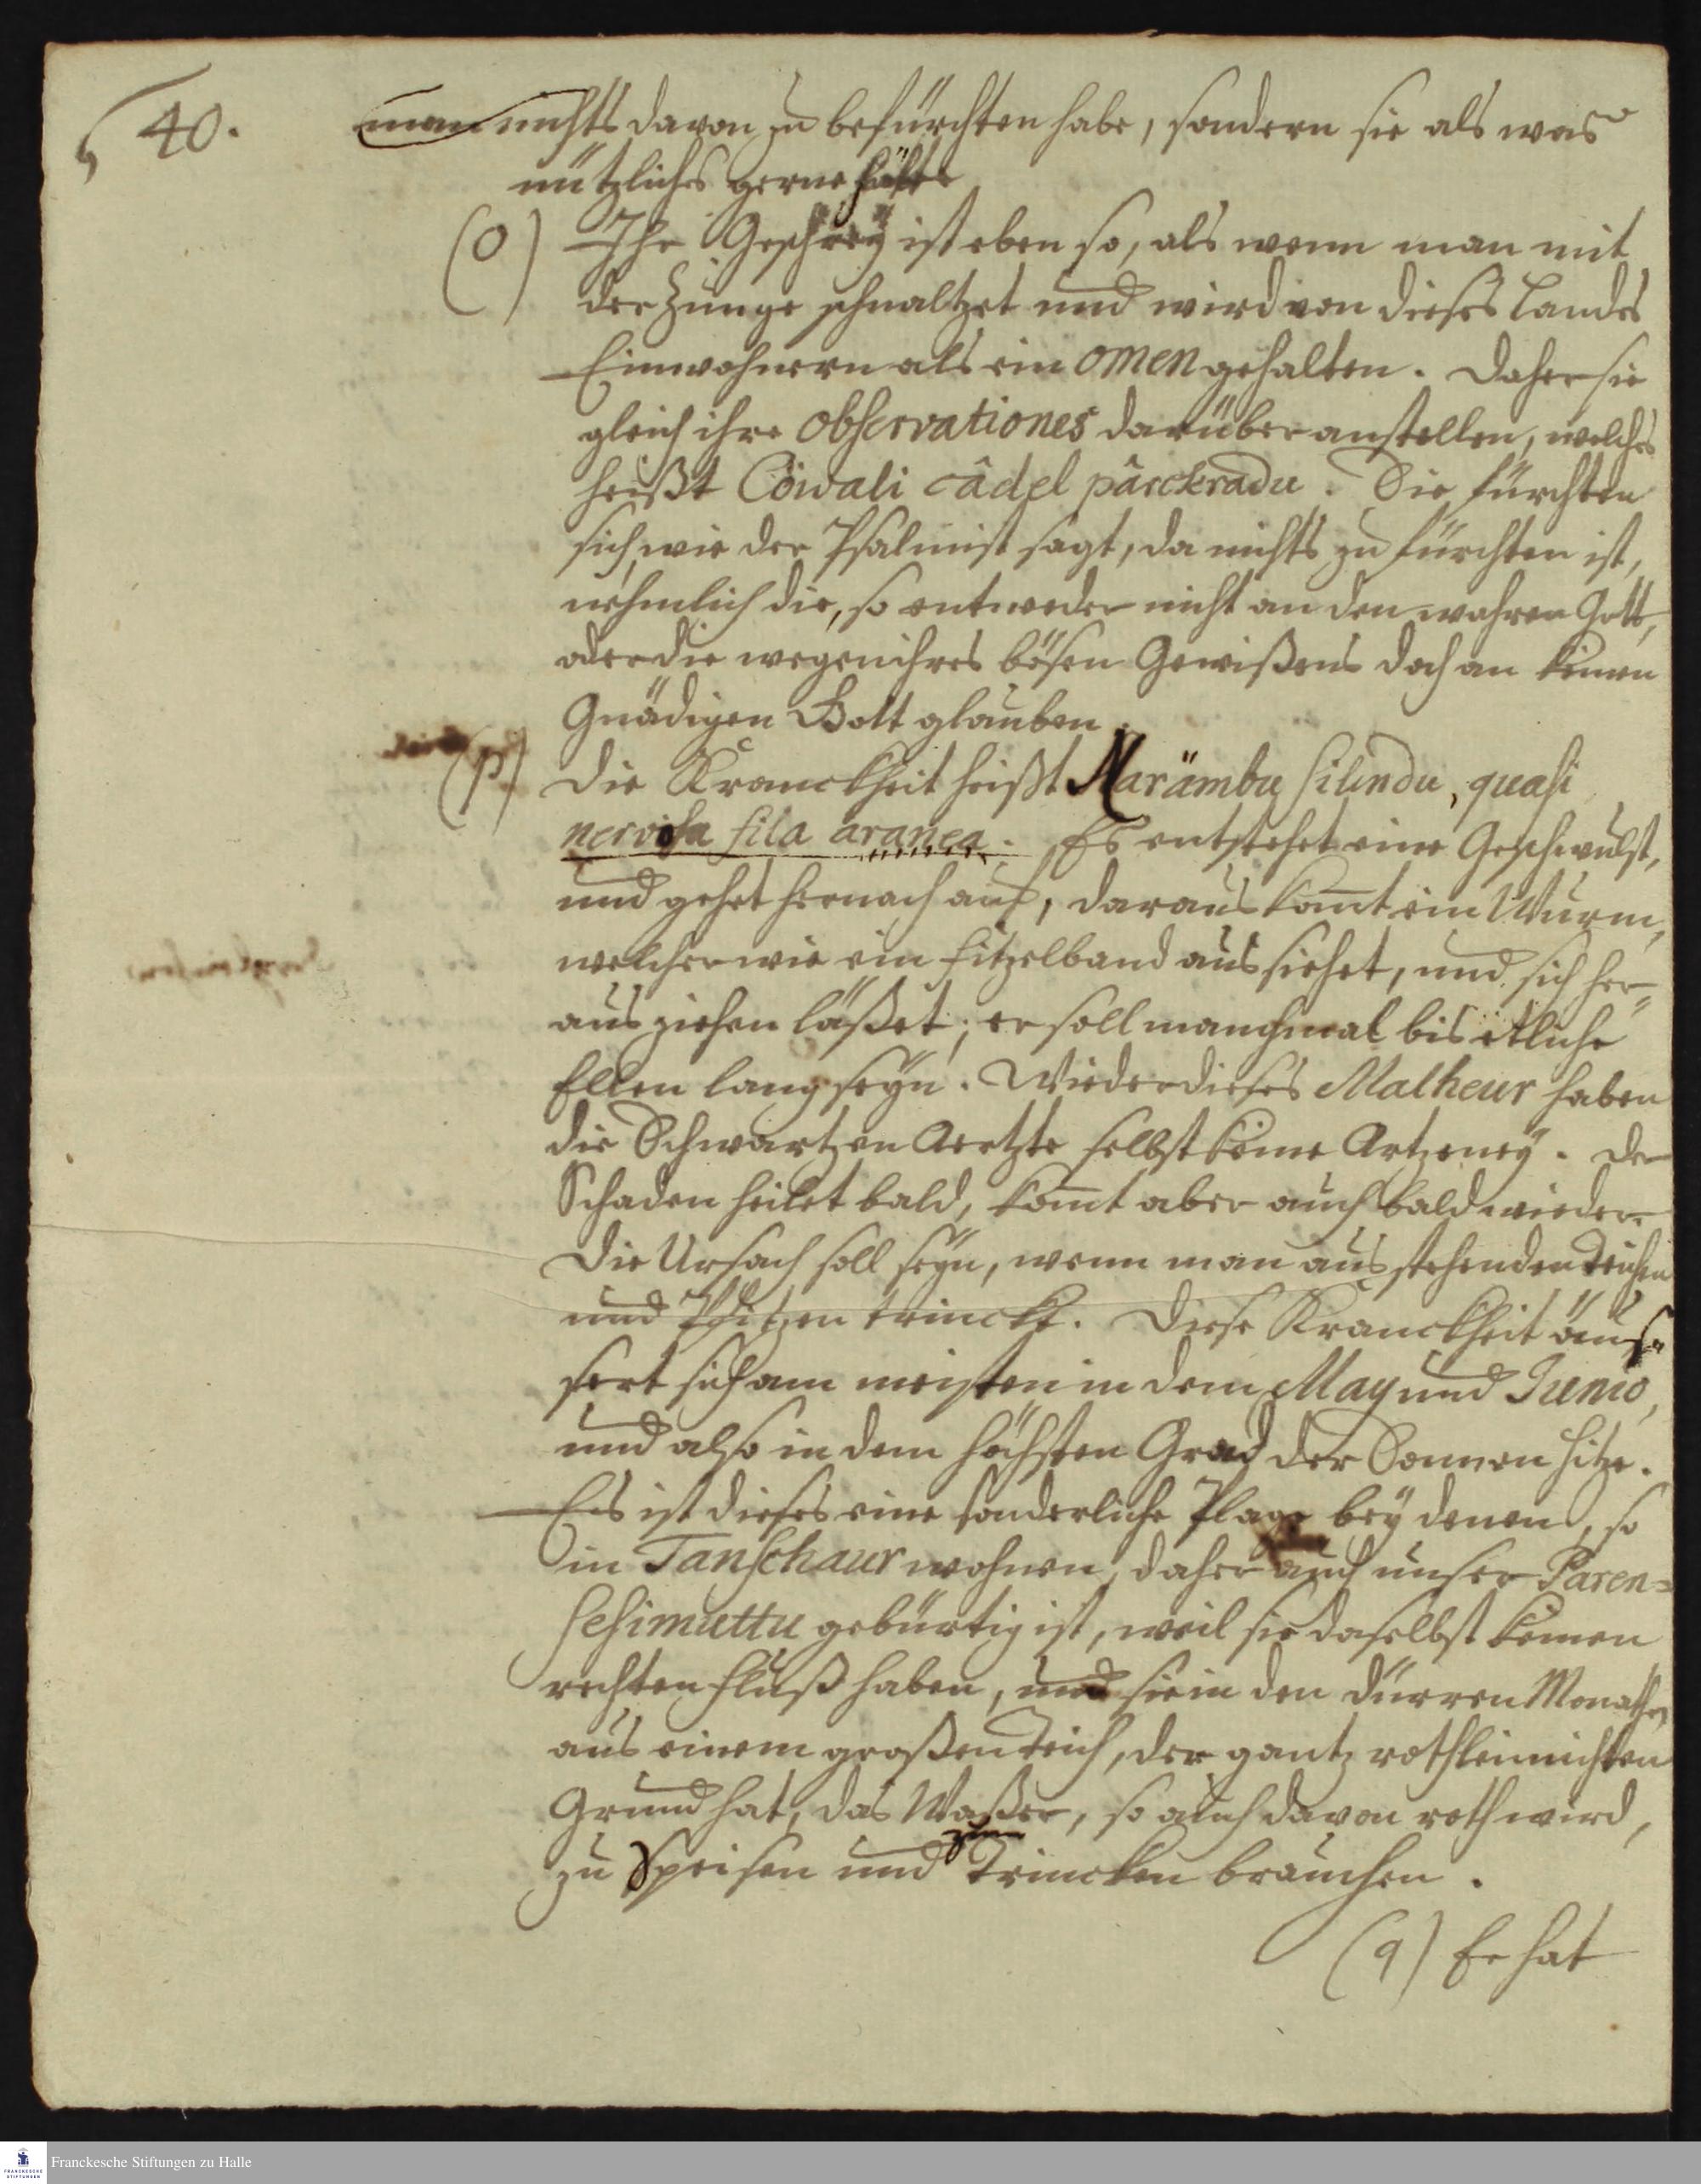 40.
man nichts davon zu befürchten habe, sondern sie als was
nützliches gerne hält
(o) Ihr Geschrey ist eben so, als wenn man mit
der Zunge schnaltzet und wird von dieses Landes
Einwohnern als ein omen gehalten. Daher sie
gleich ihre observationes darüber anstellen, welches
heißt Cöwali câdel pârckradu. Sie fürchten
sich, wie der Psalmist sagt, da nichts zu fürchten ist,
nehmlich die, so entweder nicht an den wahren Gott,
oder die wegen ihres bösen Gewißens doch an keinen
Gnädigen Gott glauben.
(p) Die Kranckheit heißt Narämbu silindu, quasi
nervosa fila aranea. Es entstehet eine Geschwulst,
und gehet hernach auf, daraus kom̄t ein Wurm,
welcher wie ein Fitzelband aussiehet, und sich her-
aus ziehen läßet; er soll manchmal bis etliche
Ellen lang seyn. Wieder dieses Malheur haben
die Schwartzen Aertzte selbst keine Artzeney. Der
Schaden heilet bald, kom̄t aber auch bald wieder.
Die Ursach soll seyn, wenn man aus stehenden Teichen
und Pfützen trinckt. Diese Kranckheit äus-
sert sich am meisten in dem May und Junio,
und also in dem höchsten Grad der Sonnen Hitze.
Es ist dieses eine sonderliche Plage bey denen, so
in Tanschaur wohnen, daher auch unser Paren=
sesimuttu gebürtig ist, weil sie daselbst keinen
rechten Fluß haben, und sie in den dürren Monathen
aus einem großen Teich, der gantz rothleimichten
Grund hat, das Waßer, so auch davon roth wird,
zu Speisen und zum Trincken brauchen.
(q) Er hat
Franckesche Stiftungen zu Halle